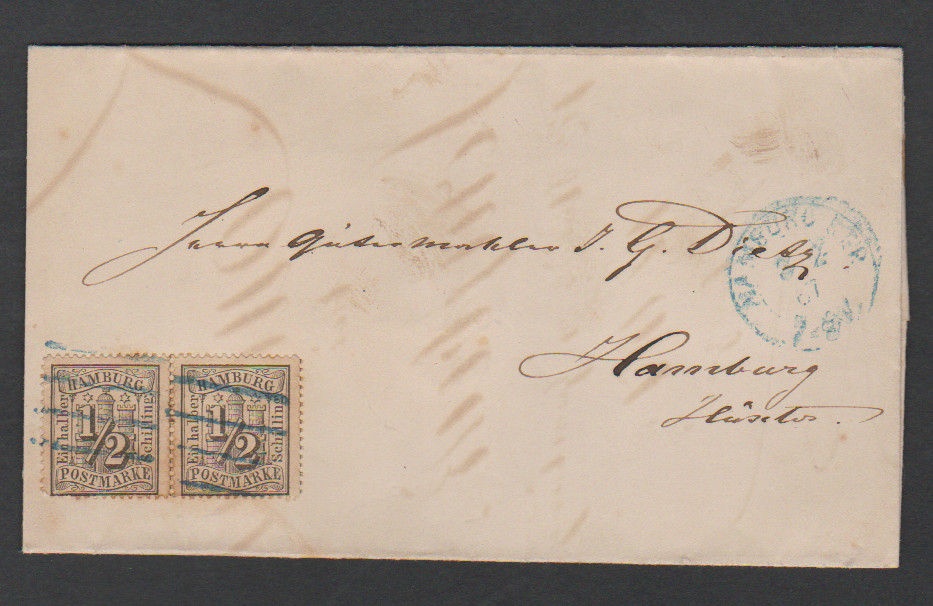 Herrn Gütermakler J. G. Dietz.
Hamburg
HAMBURG
67
HAMBURG
Ein halber
1/2
Schilling
POSTMARKE
HAMBURG
Ein halber
1/2
Schilling
POSTMARKE